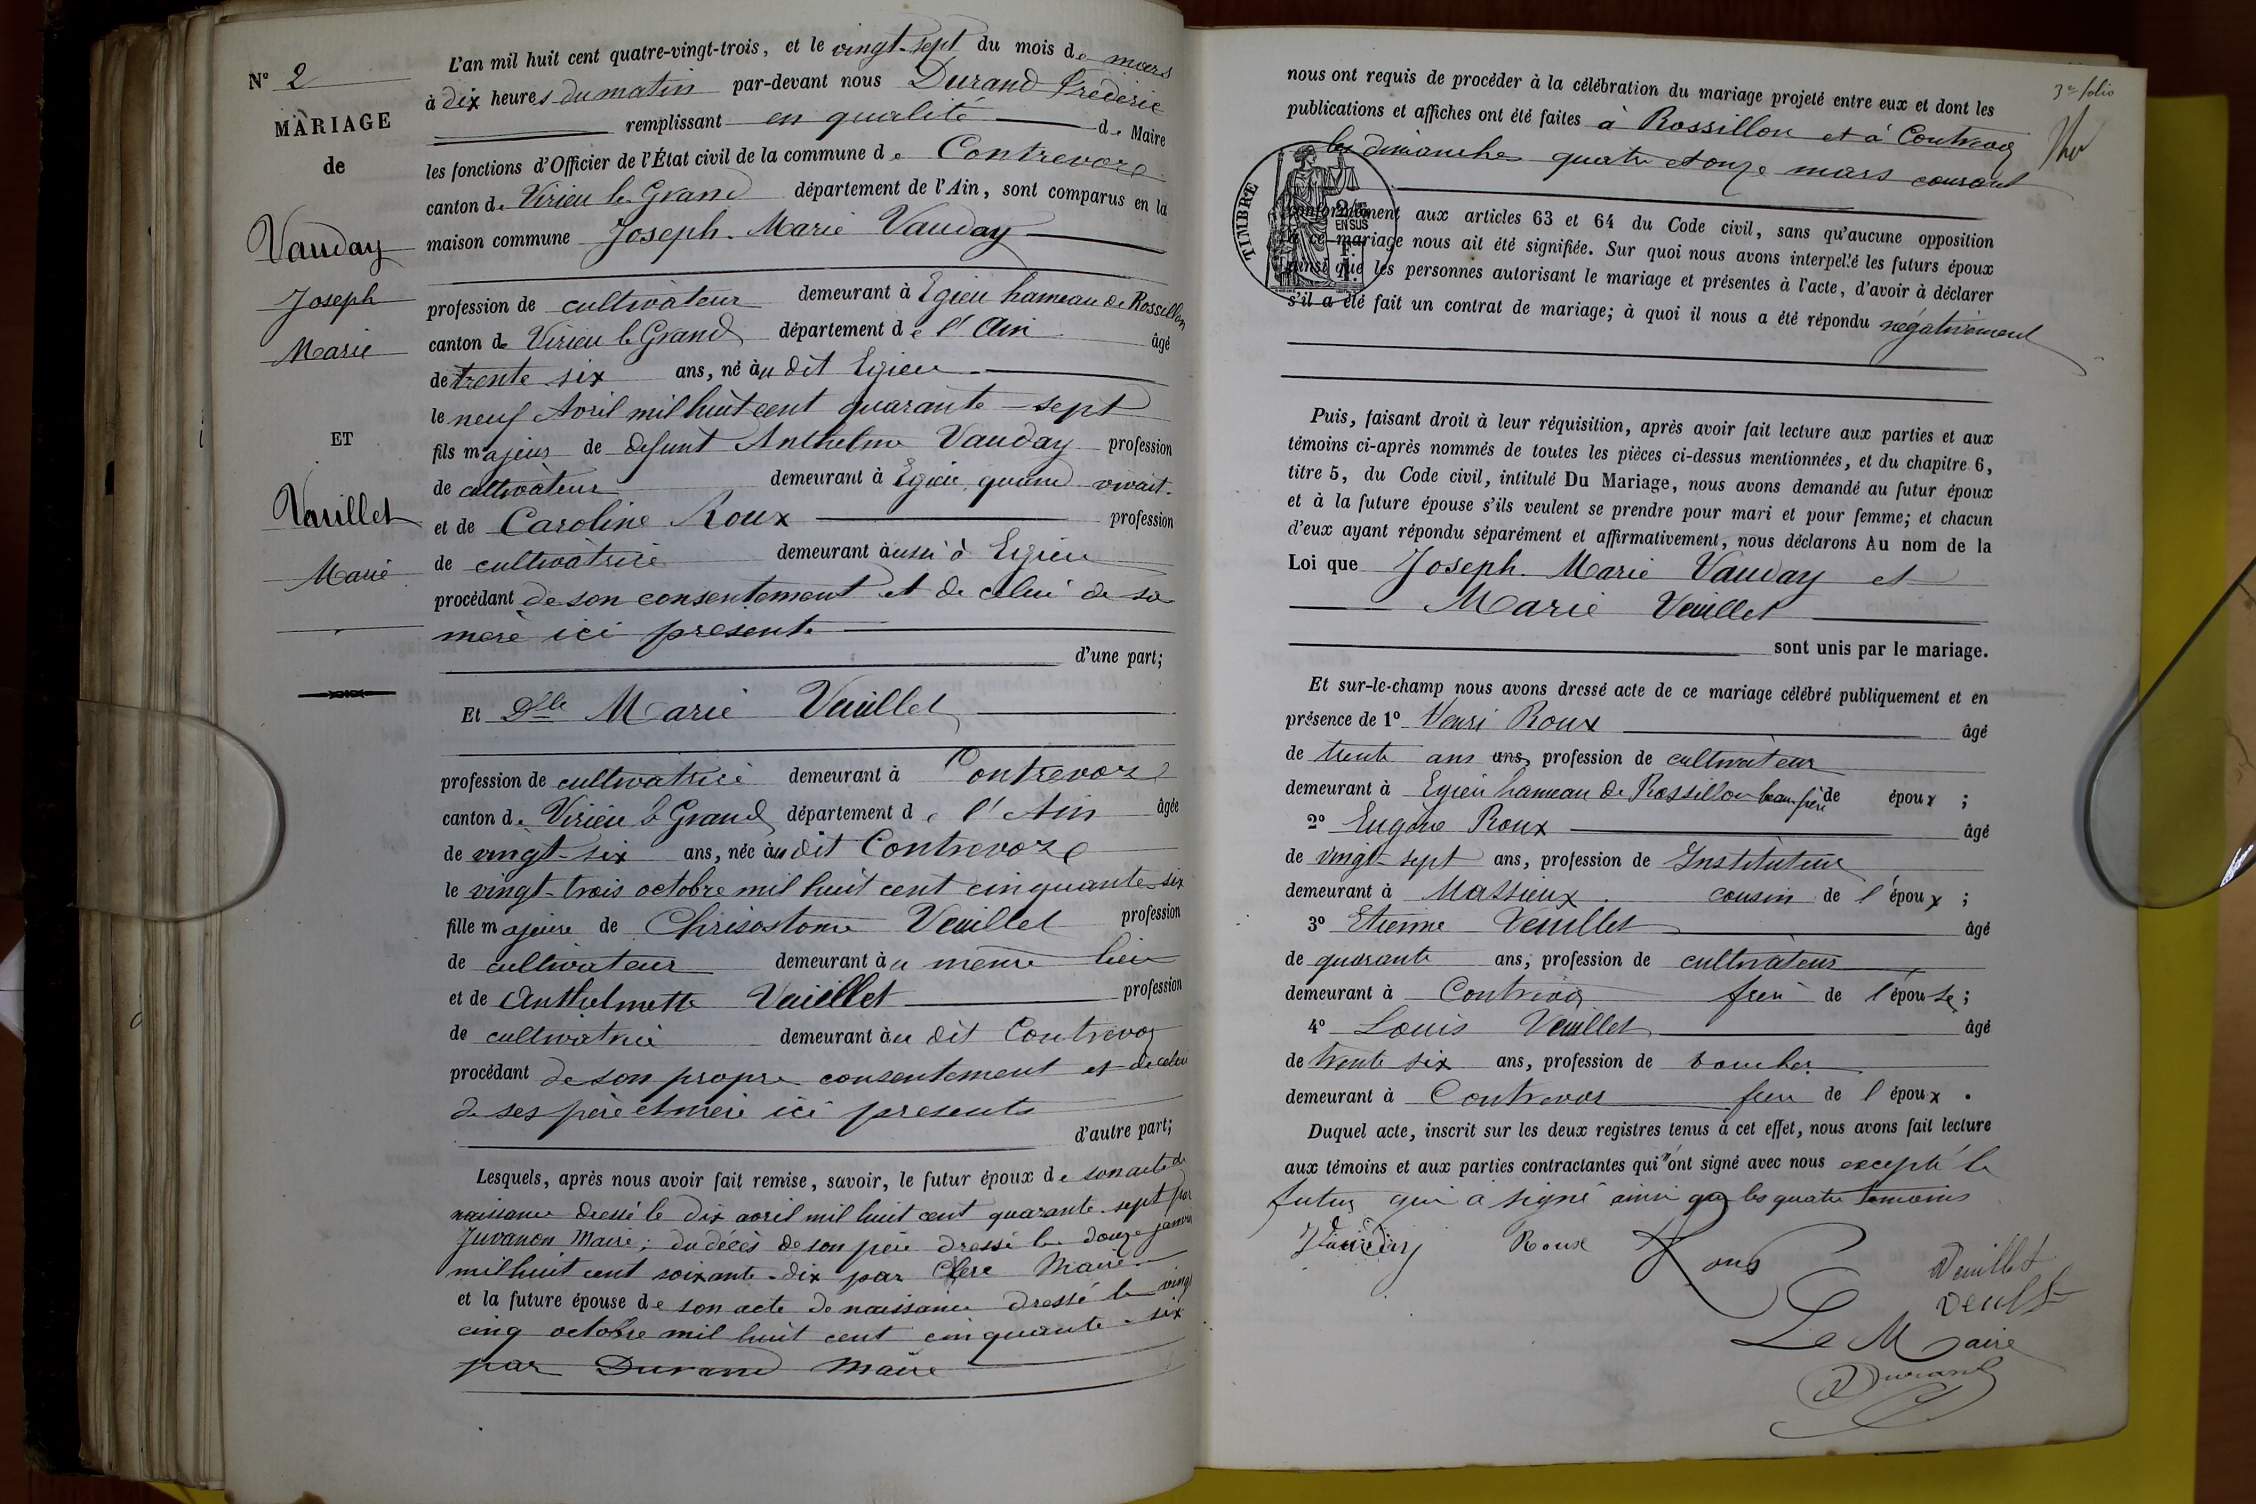 L'an mil huit cent quatre-vingt-trois, et le vingt-sept du mois de mars
N° 2
à dix heures du matin par-devant nous Durand Frédéric
MARIAGE
remplissant en qualité de Maire
de
les fonctions d'Officier de l'État civil de la commune de Contrevoze
canton de Virieu le Grand département de l'Ain, sont comparus en la
Vauday
maison commune Joseph-Marie Vauday
Joseph
profession de cultivateur demeurant à Egieu hameau de Rossillon
Marie
canton de Virieu le Grand département de l'Ain âgé
de trente six ans, né au dit Egieu
le neuf Avril mil huit cent quarante-sept
ET
fils majeur de défunt Anthelme Vauday profession
de cultivateur demeurant à Egieu quand vivait.
Veuillet
et de Caroline Roux profession
de cultivatrice demeurant aussi à Egieu
Marie
procédant de son consentement et de celui de sa
mère ici présente
d'une part;
Et Dlle Marie Veuillet
profession de cultivatrice demeurant à Contrevoze
canton de Virieu le Grand département de l'Ain âgée
de vingt-six ans, née au dit Contrevoze
le vingt-trois octobre mil huit cent cinquante-six
fille majeure de Chrisostome Veuillet profession
de cultivateur demeurant au même lieu
et de Anthelmette Veuillet profession
de cultivatrice demeurant au dit Contrevoz
procédant de son propre consentement et de celui
de ses père et mère ici présents
d'autre part;
Lesquels, après nous avoir fait remise, savoir, le futur époux de son acte de
naissance dressé le dix avril mil huit cent quarante-sept par
Juvanon Maire; du décès de son père dressé le douze janvier
mil huit cent soixante-dix par Clerc Maire
et la future épouse de son acte de naissance dressé le vingt
cinq octobre mil huit cent cinquante-six
par Durand Maire
3e folio
nous ont requis de procéder à la célébration du mariage projeté entre eux et dont les
publications et affiches ont été faites à Rossillon et à Contrevoz
les dimanches quatre et onze mars courant
TIMBRE
2/10 EN SUS
conformément aux articles 63 et 64 du Code civil, sans qu'aucune opposition
à ce mariage nous ait été signifiée. Sur quoi nous avons interpellé les futurs époux
ainsi que les personnes autorisant le mariage et présentes à l'acte, d'avoir à déclarer
s'il a été fait un contrat de mariage; à quoi il nous a été répondu négativement
Puis, faisant droit à leur réquisition, après avoir fait lecture aux parties et aux
témoins ci-après nommés de toutes les pièces ci-dessus mentionnées, et du chapitre 6,
titre 5, du Code civil, intitulé Du Mariage, nous avons demandé au futur époux
et à la future épouse s'ils veulent se prendre pour mari et pour femme; et chacun
d'eux ayant répondu séparément et affirmativement, nous déclarons Au nom de la
Loi que Joseph-Marie Vauday et
Marie Veuillet
sont unis par le mariage.
Et sur-le-champ nous avons dressé acte de ce mariage célébré publiquement et en
présence de 1° Henri Roux âgé
de trente ans ans, profession de cultivateur
demeurant à Egieu hameau de Rossillon beau-frère de époux ;
2° Eugène Roux âgé
de vingt-sept ans, profession de Instituteur
demeurant à Massieux cousin de l'époux ;
3° Etienne Veuillet âgé
de quarante ans, profession de cultivateur
demeurant à Contrevoz frère de l'épouse ;
4° Louis Veuillet âgé
de trente six ans, profession de boucher
demeurant à Contrevoz frère de l'époux .
Duquel acte, inscrit sur les deux registres tenus à cet effet, nous avons fait lecture
aux témoins et aux parties contractantes qui n'ont signé avec nous excepté le
futur qui a signé ainsi que les quatre témoins
Vauday Roux Roux Veuillet
Veuillet
Le Maire
Durand